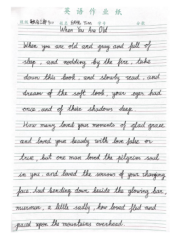 英语作业纸
When You Are Old
When you are old and grey and full of
sleep, and nodding by the fire, take
down this book, and slowly read, and
dream of the soft look your eyes had
once, and of their shadows deep.
How many loved your moments of glad grace
and loved your beauty with love false or
true, but one man loved the pilgrim soul
in you and loved the sorrows of your changing
face, but bending down beside the glowing bar,
murmur, a little sadly, how loved fled and
paced upon the mountains overhead